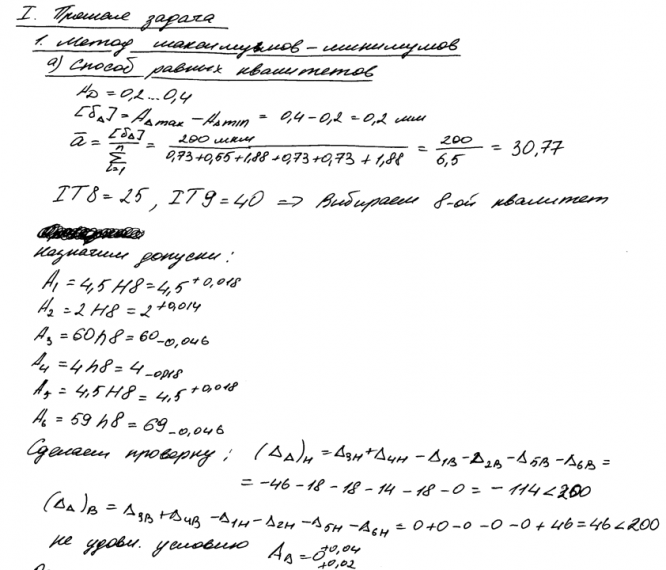 I. Прямая задача
1. Метод максимумов-минимумов
а) Способ равных квалитетов
A_D = 0,2...0,4
[δ_Δ] = A_Δmax - A_Δmin = 0,4 - 0,2 = 0,2 мм
ā = [δ_Δ] / Σ(i=1, n) = 200 мкм / (0,73+0,55+1,88+0,73+0,73+1,88) = 200 / 6,5 = 30,77
IT8 = 25, IT9 = 40 => Вибираем 8-ой квалитет
Назначим допуски:
A₁ = 4,5 H8 = 4,5^+0,018
A₂ = 2 H8 = 2^+0,014
A₃ = 60 h8 = 60_-0,046
A₄ = 4 h8 = 4_-0,018
A₅ = 4,5 H8 = 4,5^+0,018
A₆ = 59 h8 = 69_-0,046
Сделаем проверку: (Δ_Δ)_H = Δ_3H + Δ_4H - Δ_1B - Δ_2B - Δ_5B - Δ_6B =
= -46 - 18 - 18 - 14 - 18 - 0 = -114 < 200
(Δ_Δ)_B = Δ_3B + Δ_4B - Δ_1H - Δ_2H - Δ_5H - Δ_6H = 0+0-0-0-0+46 = 46 < 200
не удовл. условию A_Δ = 0^+0,04_+0,02